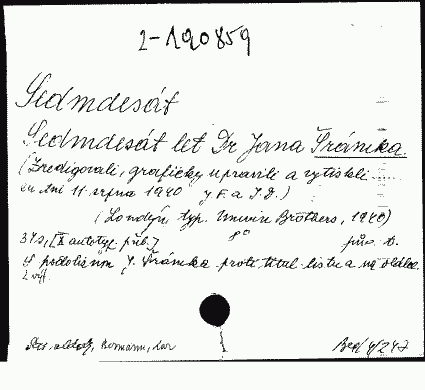 2-190859
Sedmdesát
Sedmdesát let Dr Jana Šrámka.
(Zredigovali, graficky upravili a vytiskli.....
ku dni 11. srpna 1940 y F. a J. J.)
(Londýn, typ. Unwin Brothers, 1940)
34 s, [X autotyp. příl.] 8° pův. b.
S podobizn J. Šrámka proti titul. listu a na obálce.
2 výt.
Bed/4/247